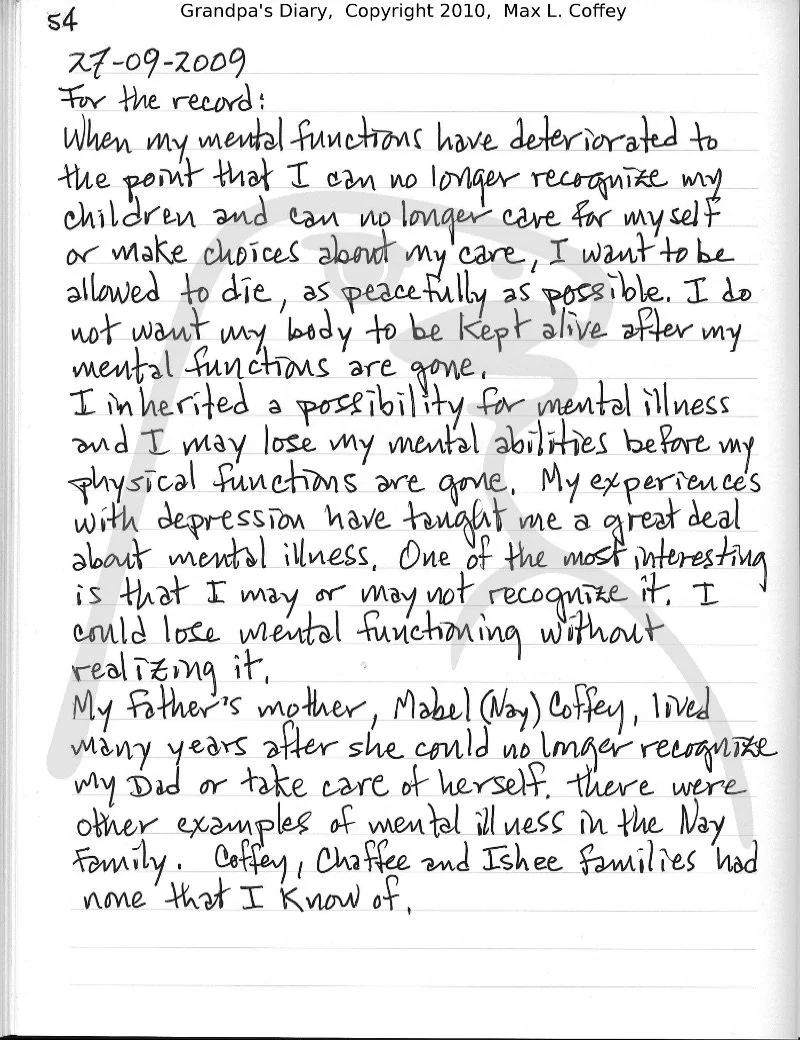 54
Grandpa's Diary, Copyright 2010, Max L. Coffey
27-09-2009
For the record:
When my mental functions have deteriorated to
the point that I can no longer recognize my
children and can no longer care for myself
or make choices about my care, I want to be
allowed to die, as peacefully as possible. I do
not want my body to be kept alive after my
mental functions are gone.
I inherited a possibility for mental illness
and I may lose my mental abilities before my
physical functions are gone. My experiences
with depression have taught me a great deal
about mental illness. One of the most interesting
is that I may or may not recognize it. I
could lose mental functioning without
realizing it.
My father's mother, Mabel (Nay) Coffey, lived
many years after she could no longer recognize
my Dad or take care of herself. There were
other examples of mental illness in the Nay
family. Coffey, Chaffee and Ishee families had
none that I know of.